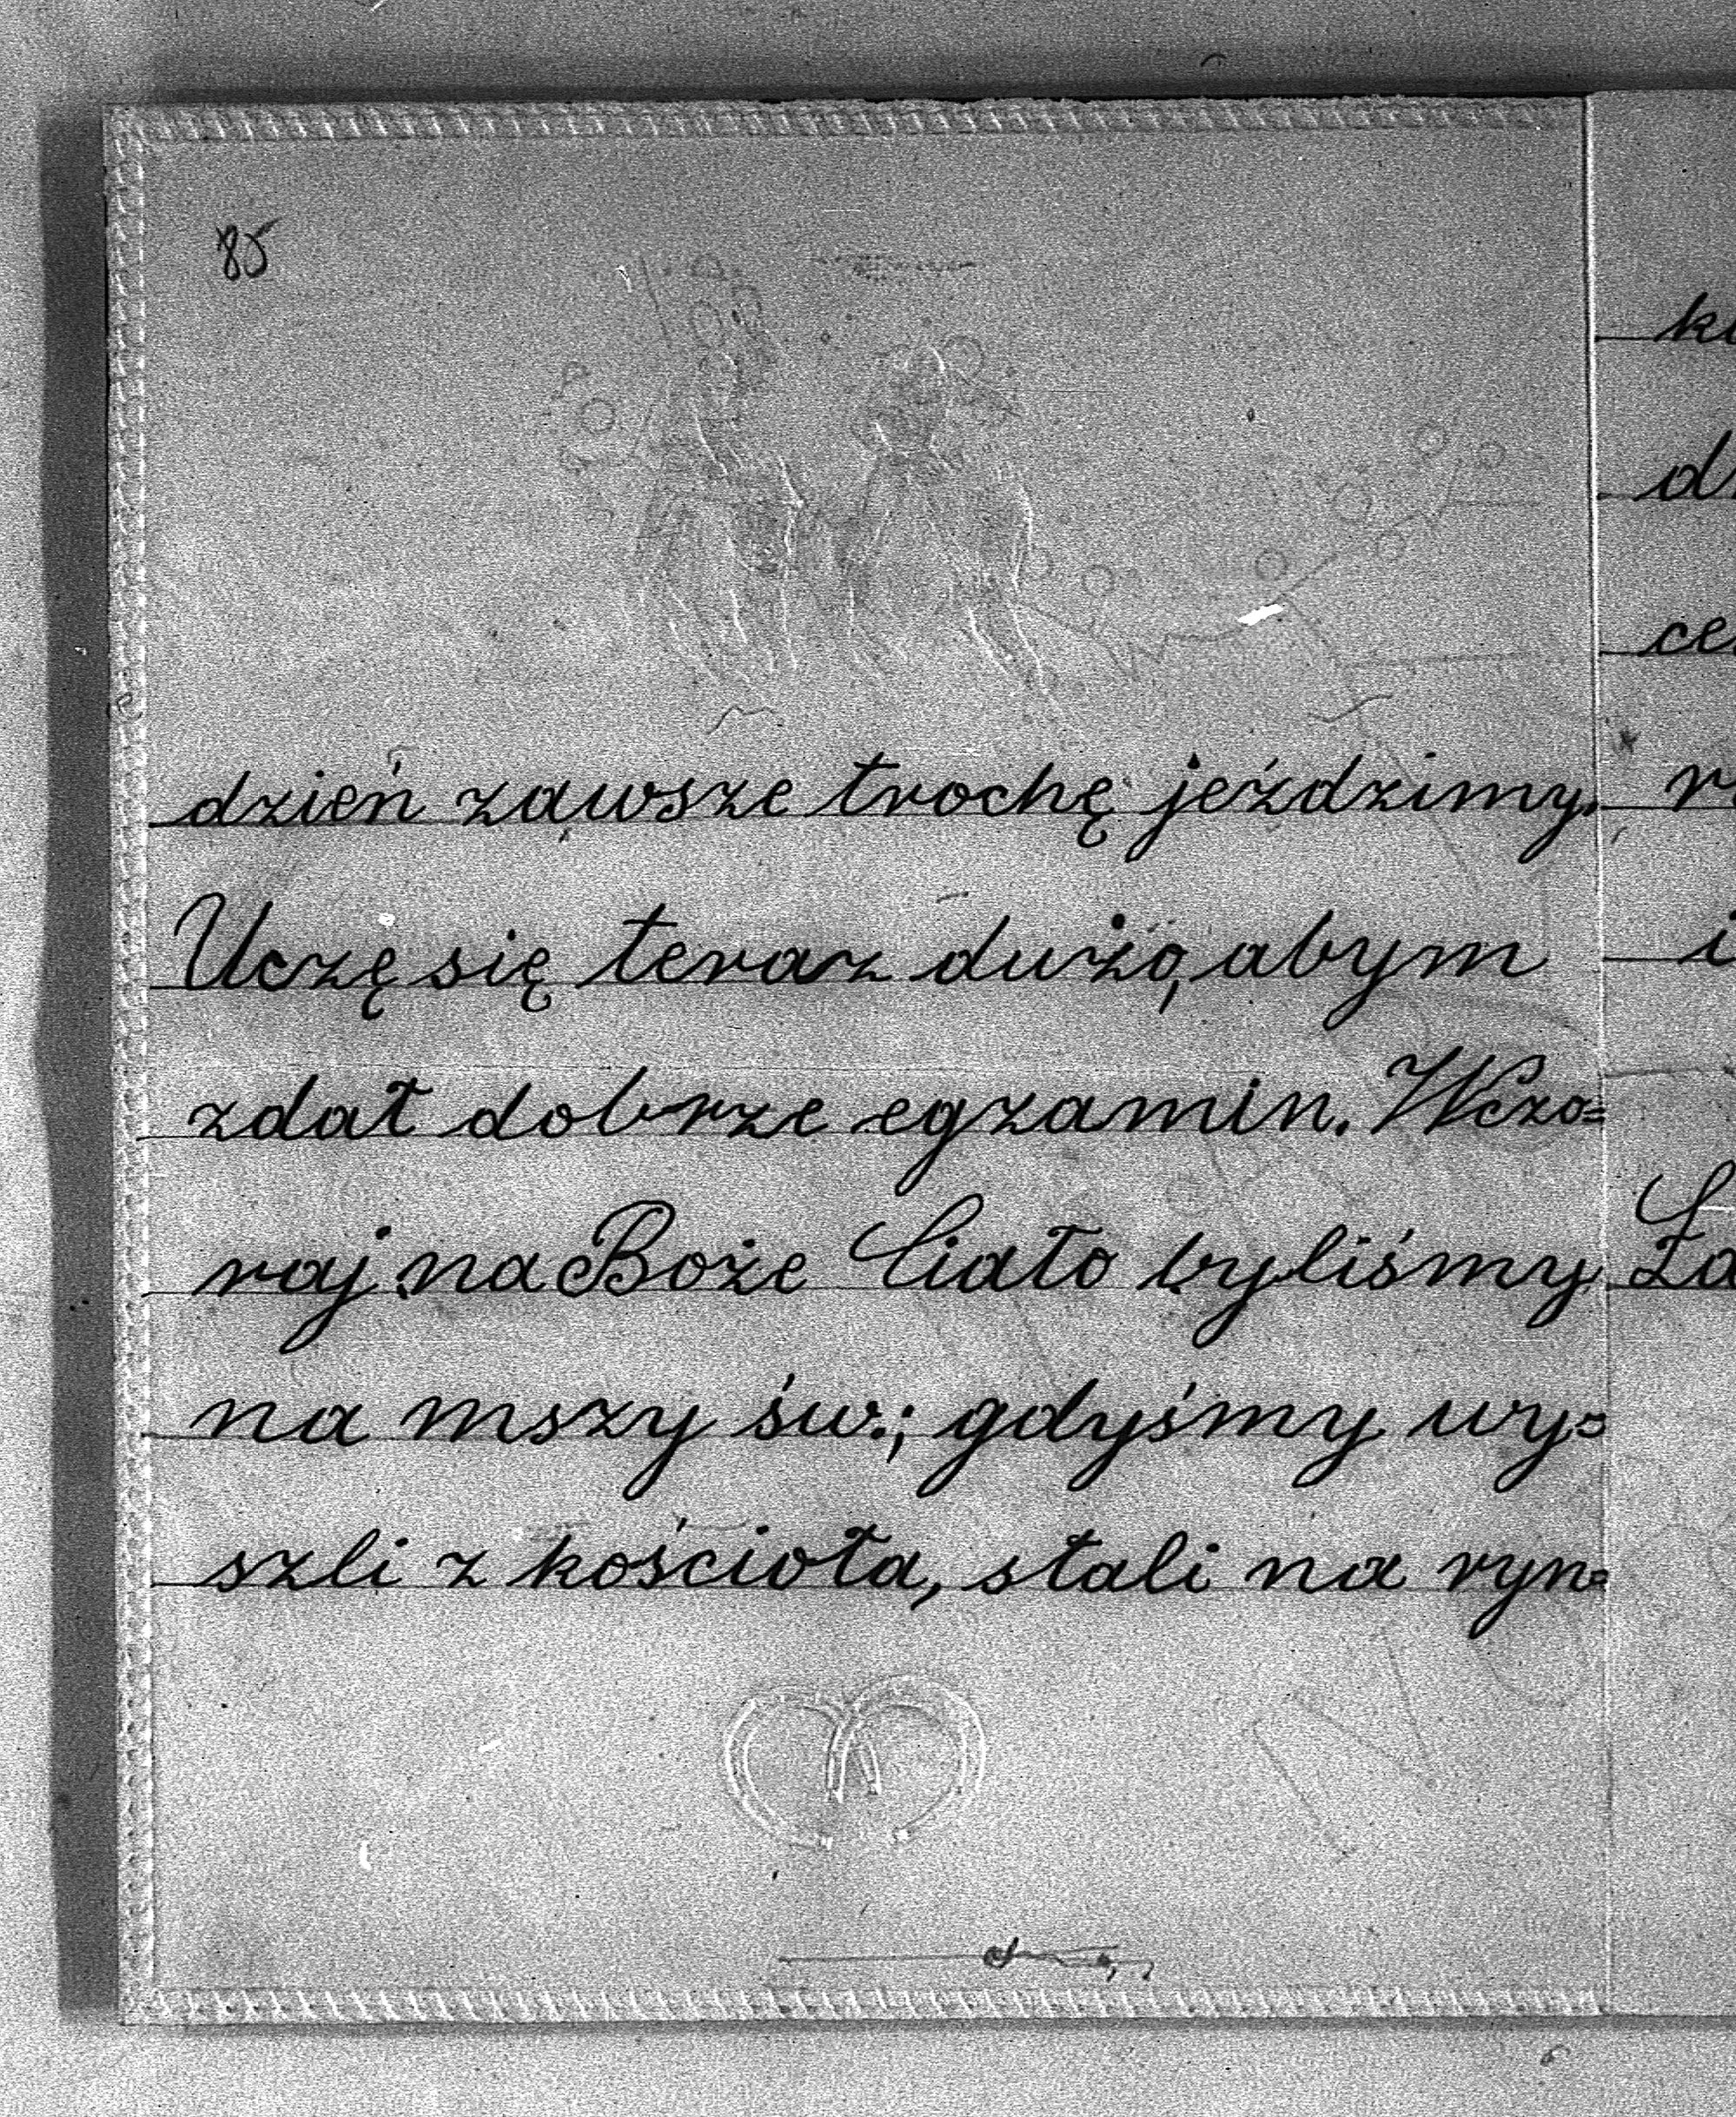 85
dzień zawsze trochę jeździmy.
Uczę się teraz dużo, abym
zdał dobrze egzamin. Wczo=
raj na Boże Ciało byliśmy
na mszy św.; gdyśmy wy=
szli z kościoła, stali na ryn=